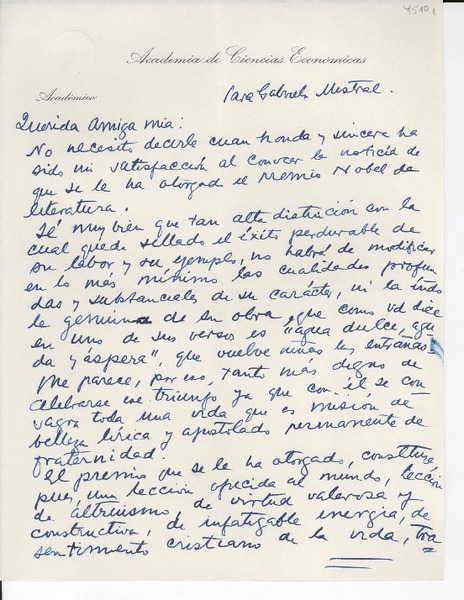 45101
Academia de Ciencias Económicas
Académico
Para Gabriela Mistral.
Querida Amiga mia:
No necesito decirle cuan honda y sincera ha
sido mi satisfacción al conocer la noticia de
que se le ha otorgad el Premio Nobel de
literatura.
Sé muy bien que tan alta distinción con la
cual queda sellado el éxito perdurable de
su labor y su ejemplo, no habrá de modificar
en lo más mínimo las cualidades profun
das y substanciales de su carácter, ni la índo
le genuina de su obra, que como vd dice
en uno de sus versos es "agua dulce, agu
da y áspera", que vuelve niñas las entrañas.
Me parece, por eso, tanto más digno de
celebrarse ese triunfo ya que con él se con
sagra toda una vida que es misión de
belleza lírica y apostolado permanente de
fraternidad.
El premio que se le ha otorgado, constituye
pues, una lección ofrecida al mundo, lección
de altruismo, de virtud valerosa y
constructiva, de infatigable energía, de
sentimiento cristiano de la vida, tra=